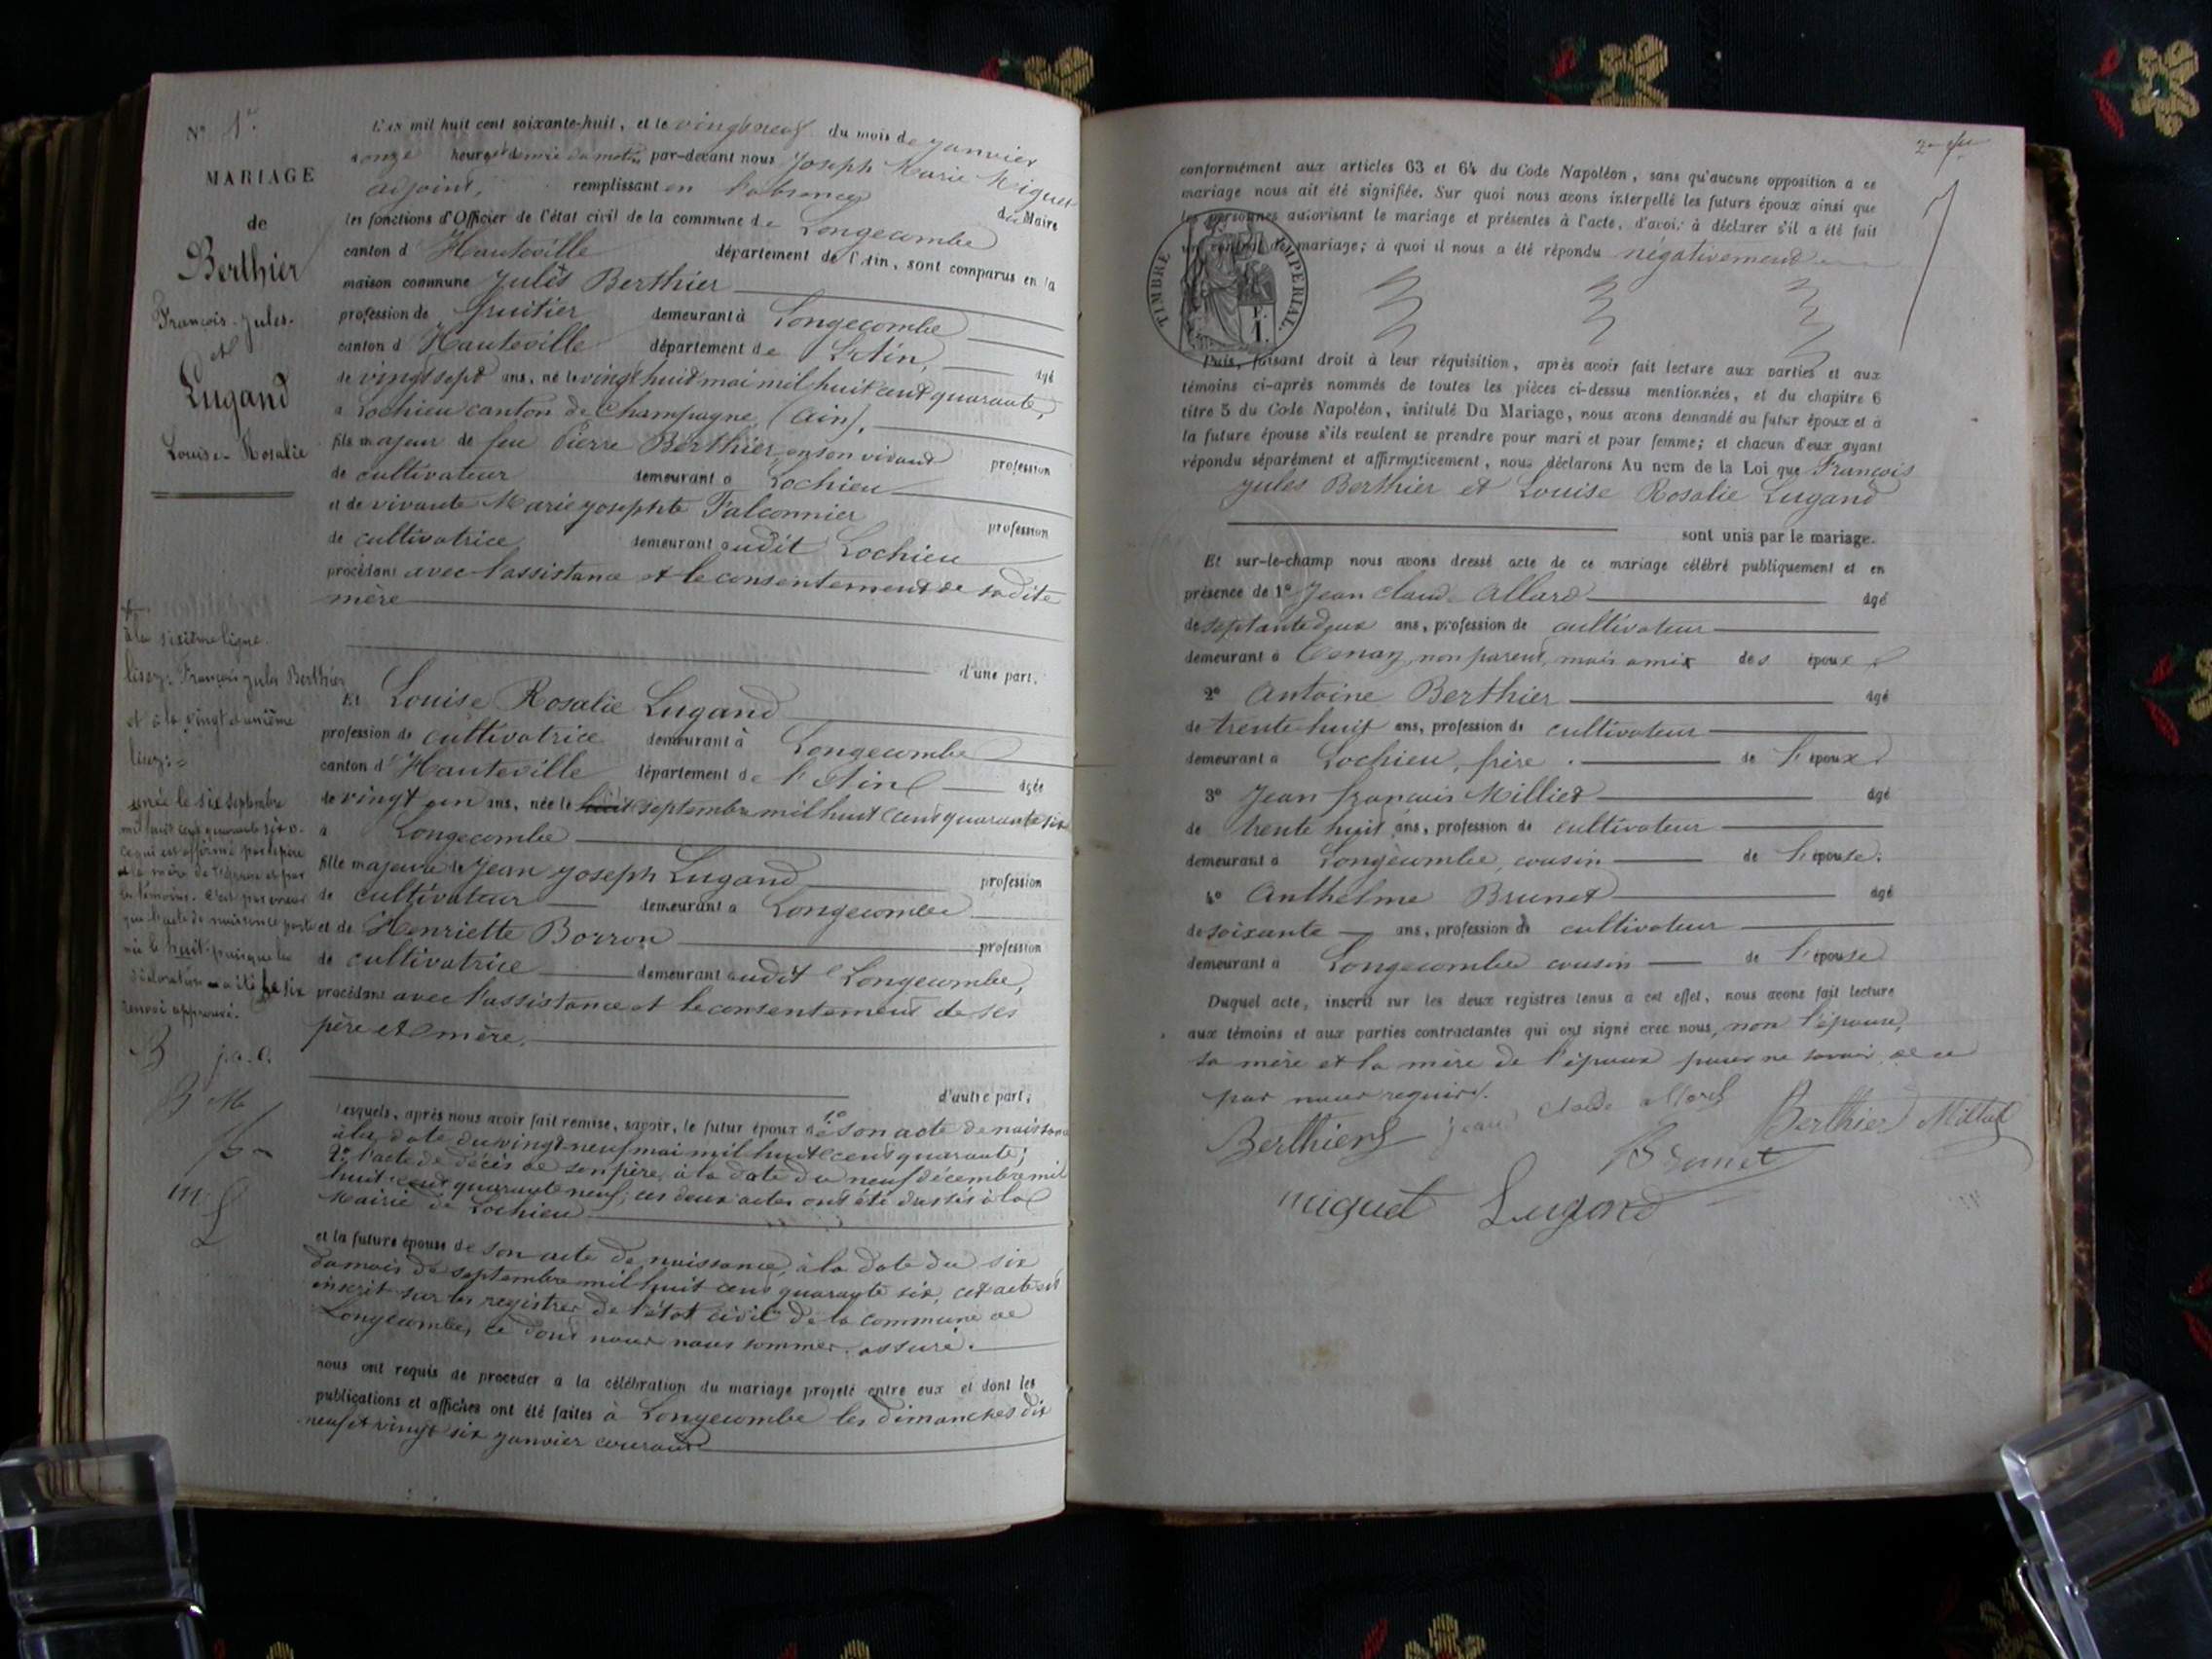 N° 1er
MARIAGE
de
Berthier
François-Jules-
et
Lugand
Louise-Rosalie
L'an mil huit cent soixante-huit, et le vingt neuf du mois de janvier
à onze heures et demie du matin par-devant nous Joseph Marie Miguet
adjoint, remplissant en l'absence du Maire
les fonctions d'Officier de l'état civil de la commune de Longecombe
canton d'Hauteville département de l'Ain, sont comparus en la
maison commune Jules Berthier
profession de fruitier demeurant à Longecombe
canton d'Hauteville département de L'Ain, âgé
de vingt sept ans, né le vingt huit mai mil huit cent quarante,
à Lochieu canton de Champagne (Ain),
fils majeur de feu Pierre Berthier, en son vivant profession
de cultivateur demeurant à Lochieu
et de vivante Marie Josephte Falconnier profession
de cultivatrice demeurant audit Lochieu
procédant avec l'assistance et le consentement de sadite
mère
d'une part.
Et Louise Rosalie Lugand
profession de cultivatrice demeurant à Longecombe
canton d'Hauteville département de l'Ain âgée
de vingt un ans, née le huit septembre mil huit cent quarante six
à Longecombe
fille majeure de Jean Joseph Lugand profession
de cultivateur demeurant à Longecombe
et de Henriette Borron profession
de cultivatrice demeurant audit Longecombe,
procédant avec l'assistance et le consentement de ses
père et mère.
d'autre part;
Lesquels, après nous avoir fait remise, savoir, le futur époux de 1° son acte de naissance
à la date du vingt-neuf mai mil huit cent quarante;
2° l'acte de décès de son père, à la date du neuf décembre mil
huit cent quarante neuf; ces deux actes ont été dressés à la
Mairie de Lochieu
et la future épouse de son acte de naissance, à la date du six
du mois de septembre mil huit cent quarante six, cet acte est
inscrit sur les registres de l'état civil de la commune de
Longecombe, ce dont nous nous sommes assuré.
nous ont requis de procéder à la célébration du mariage projeté entre eux et dont les
publications et affiches ont été faites à Longecombe les dimanches dix
neuf et vingt six janvier courant
à la sixième ligne.
lisez: François Jules Berthier
et à la vingt et unième
lisez:=
=née le six septembre
mil huit cent quarante six=
ce qui est affirmé par le père
et la mère de l'épouse et par
les témoins. C'est par erreur
que l'acte de naissance porte
née le huit-puisque la
déclaration a été le six
renvoi approuvé.
B j.c.a.
B M
B
m L
conformément aux articles 63 et 64 du Code Napoléon, sans qu'aucune opposition à ce
mariage nous ait été signifiée. Sur quoi nous avons interpellé les futurs époux ainsi que
les personnes autorisant le mariage et présentes à l'acte, d'avoir à déclarer s'il a été fait
un contrat de mariage; à quoi il nous a été répondu négativement
TIMBRE IMPÉRIAL.
F.
1.
Puis, faisant droit à leur réquisition, après avoir fait lecture aux parties et aux
témoins ci-après nommés de toutes les pièces ci-dessus mentionnées, et du chapitre 6
titre 5 du Code Napoléon, intitulé Du Mariage, nous avons demandé au futur époux et à
la future épouse s'ils veulent se prendre pour mari et pour femme; et chacun d'eux ayant
répondu séparément et affirmativement, nous déclarons Au nom de la Loi que François
Jules Berthier et Louise Rosalie Lugand
sont unis par le mariage.
Et sur-le-champ nous avons dressé acte de ce mariage célébré publiquement et en
présence de 1° Jean Claude Allard âgé
de septante deux ans, profession de cultivateur
demeurant à Tenay, non parent, mais amis des époux
2° Antoine Berthier âgé
de trente huit ans, profession de cultivateur
demeurant à Lochieu, frère de l'époux
3° Jean françois Milliet âgé
de trente huit ans, profession de cultivateur
demeurant à Longecombe, cousin de l'épouse.
4° Anthelme Brunet âgé
de soixante ans, profession de cultivateur
demeurant à Longecombe cousin de l'épouse
Duquel acte, inscrit sur les deux registres tenus à cet effet, nous avons fait lecture
aux témoins et aux parties contractantes qui ont signé avec nous, non l'épouse,
sa mère et la mère de l'époux pour ne savoir, de ce
par nous requis.
Berthier jean claude allard Berthier Milliet
Brunet
miguet Lugand